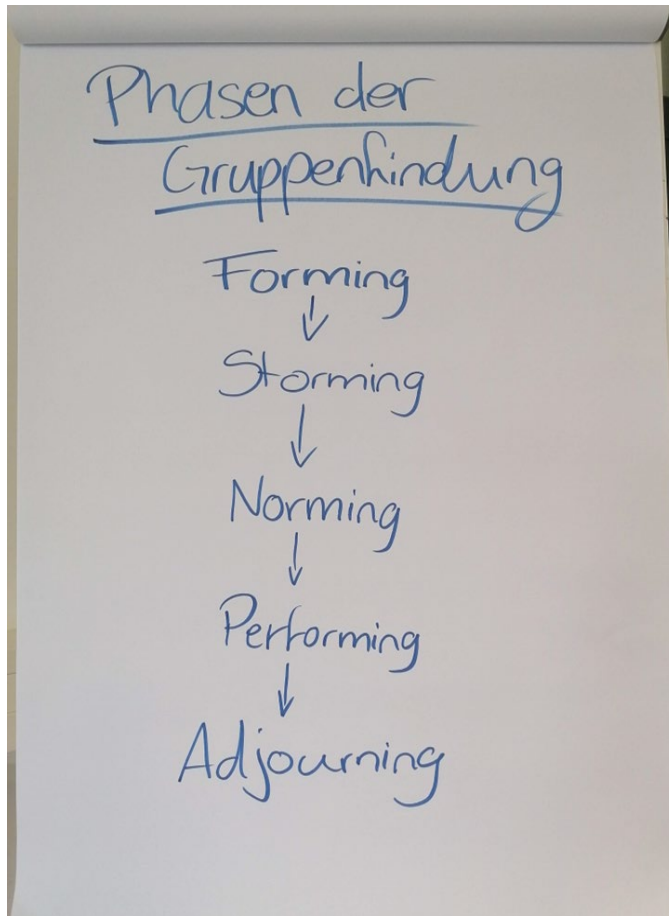 Phasen der
Gruppenfindung
Forming
↓
Storming
↓
Norming
↓
Performing
↓
Adjourning